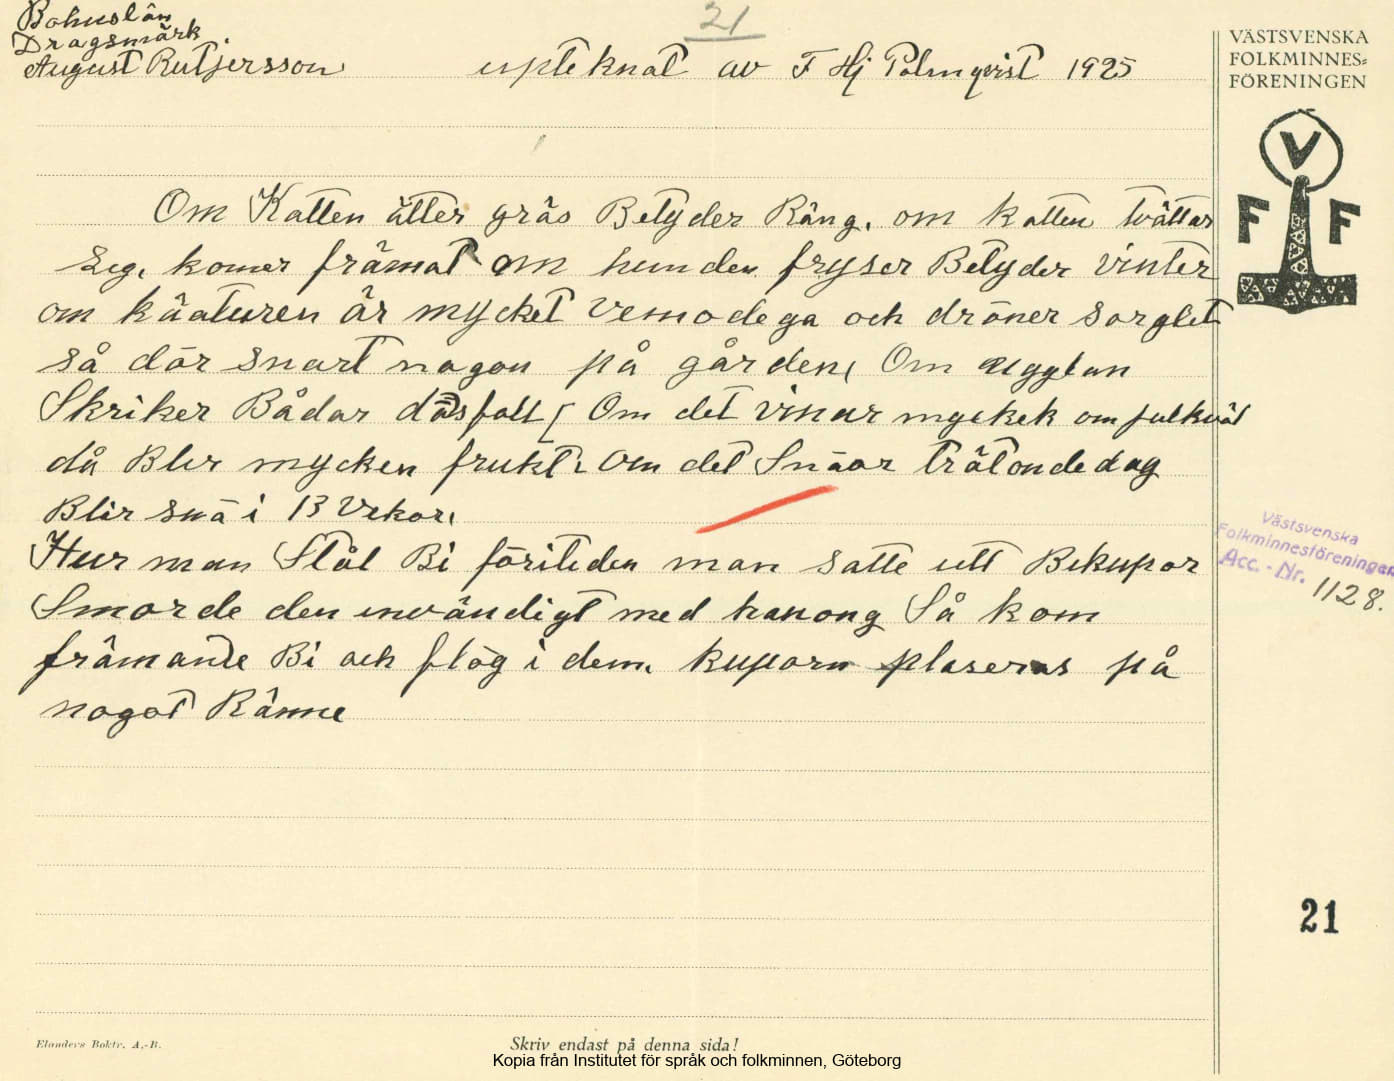 Bohuslän
Dragsmärk
August Rutjersson
21
upteknat av F Hj Palmqvist 1925
VÄSTSVENSKA
FOLKMINNES=
FÖRENINGEN
V
F F
Om Katten ätter gräs Betyder Räng, om katten tvättar
seg, komer främat om hunden fryser Betyder vinter
om kräaturen är mycket vemodega och dröner sorglet
så dör snart nagon på gården, Om ugglan
Skriker Bådar dösfall Om det vinar myckek om julkväl
då Blir mycken frukt, Om det Snöar trätondedag
Blir snö i 13 Vekor,
Hur man Stål Bi föritiden man satte utt Bikupor
Smorde den invändigt med hanong Så kom
främande Bi och flög i dem, kuporn plaseras på
nogot Ränne
Västsvenska
Folkminnesföreningen
Acc.-Nr. 1128.
21
Elanders Boktr. A.-B.
Skriv endast på denna sida!
Kopia från Institutet för språk och folkminnen, Göteborg